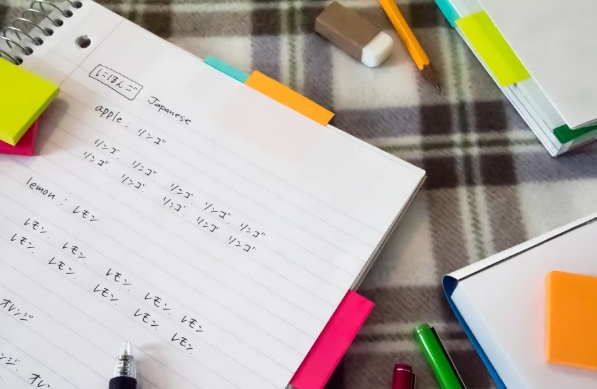 にほんご Japanese
apple : リンゴ
リンゴ リンゴ リンゴ リンゴ リンゴ
リンゴ リンゴ リンゴ リンゴ リンゴ
lemon : レモン
レモン レモン レモン レモン レモン
レモン レモン レモン レモン レモン
オレンジ